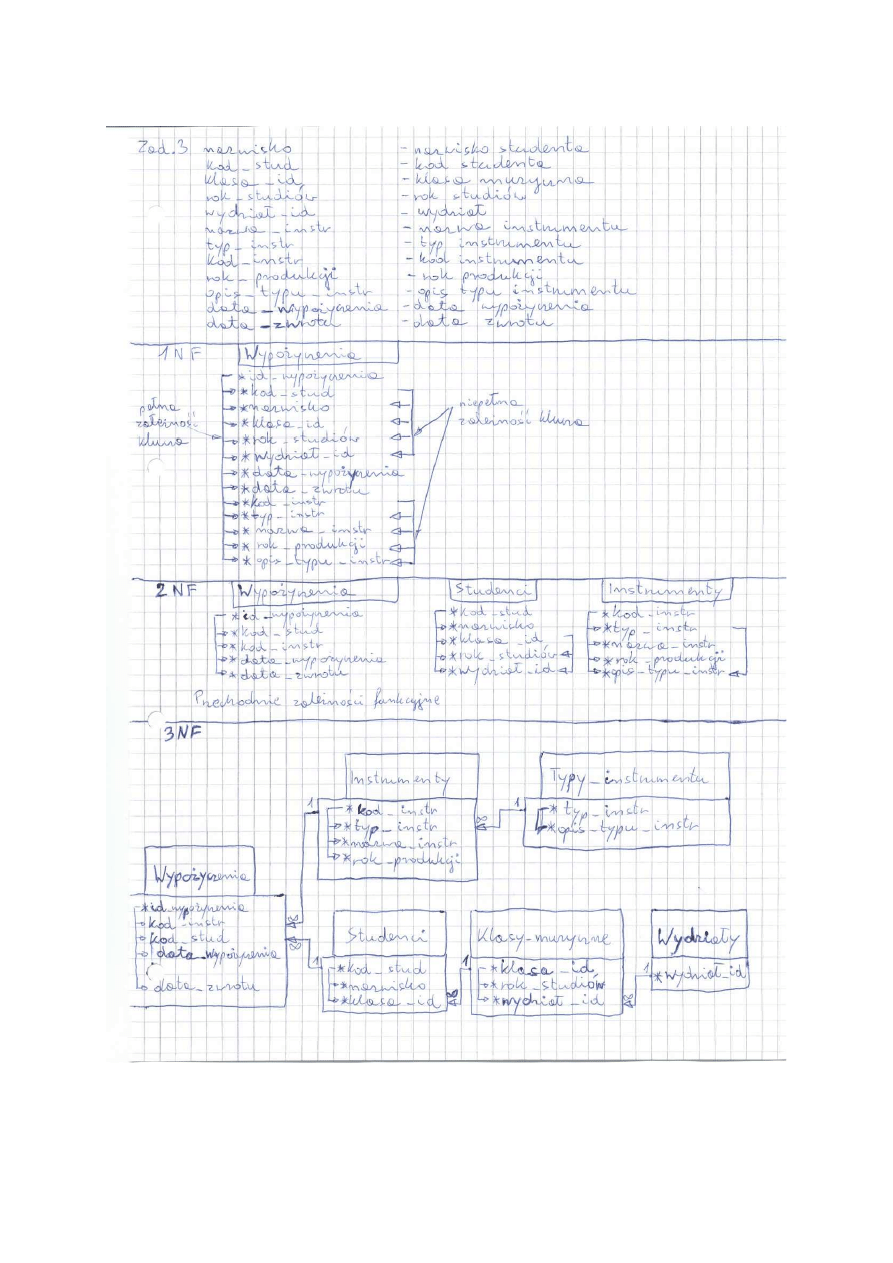 Zad.3 nazwisko - nazwisko studenta
kod_stud - kod studenta
klasa_id - klasa muzyczna
rok_studiów - rok studiów
wydział_id - wydział
nazwa_instr - nazwa instrumentu
typ_instr - typ instrumentu
kod_instr - kod instrumentu
rok_produkcji - rok produkcji
opis_typu_instr - opis typu instrumentu
data_wypożyczenia - data wypożyczenia
data_zwrotu - data zwrotu
1NF Wypożyczenia
*id_wypożyczenia
*kod_stud
*nazwisko
*klasa_id
*rok_studiów
*wydział_id
*data_wypożyczenia
*data_zwrotu
*kod_instr
*typ_instr
*nazwa_instr
*rok_produkcji
*opis_typu_instr
pełna
zależność
klucza
niepełna
zależność klucza
2NF Wypożyczenia
*id_wypożyczenia
*kod_stud
*kod_instr
*data_wypożyczenia
*data_zwrotu
Studenci
*kod_stud
*nazwisko
*klasa_id
*rok_studiów
*wydział_id
Instrumenty
*kod_instr
*typ_instr
*nazwa_instr
*rok_produkcji
*opis_typu_instr
Przechodnie zależności funkcyjne
3NF
Instrumenty
1
*kod_instr
*typ_instr
*nazwa_instr
*rok_produkcji
∞
Typy_instrumentu
1
*typ_instr
*opis_typu_instr
Wypożyczenia
*id_wypożyczenia
kod_instr
kod_stud
data_wypożyczenia
data_zwrotu
∞
∞
Studenci
1
*kod_stud
*nazwisko
*klasa_id
∞
Klasy_muzyczne
1
*klasa_id
*rok_studiów
*wydział_id
∞
Wydziały
1
*wydział_id